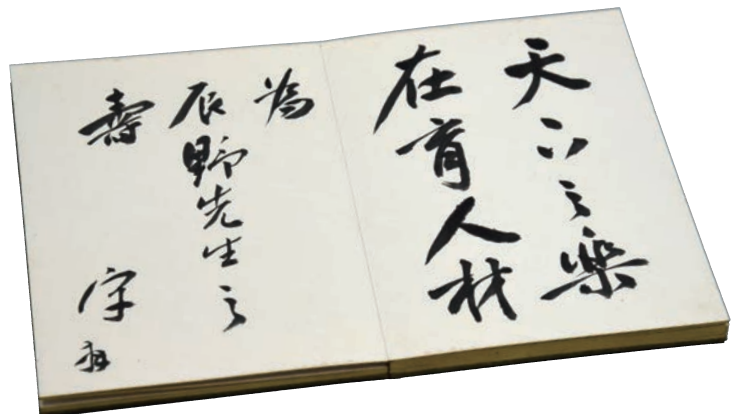 天下之樂
在育人材
為
辰野先生之
壽